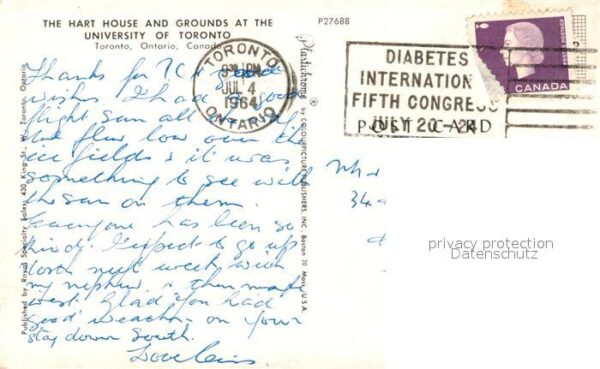 THE HART HOUSE AND GROUNDS AT THE
UNIVERSITY OF TORONTO
Toronto, Ontario, Canada
P27688
TORONTO
9 30 PM
JUL 4
1964
ONTARIO
DIABETES
INTERNATION
FIFTH CONGRESS
JULY 20 - 24
POST CARD
POSTAGE
CANADA
Thanks for
wishes. I had a good
flight, sun all
flew low over the
ice fields & it was
something to see with
the sun on them.
Everyone has been so
kind. I expect to go up
north next week with
my nephew & then
west. Glad you had
good weather on your
stay down South.
Love
Published by Royal Specialty Sales, 430, King St. W. Toronto, Ontario
Plastichrome ® by COLOURPICTURE PUBLISHERS, INC. Boston 30 Mass. U.S.A.
34
privacy protection
Datenschutz